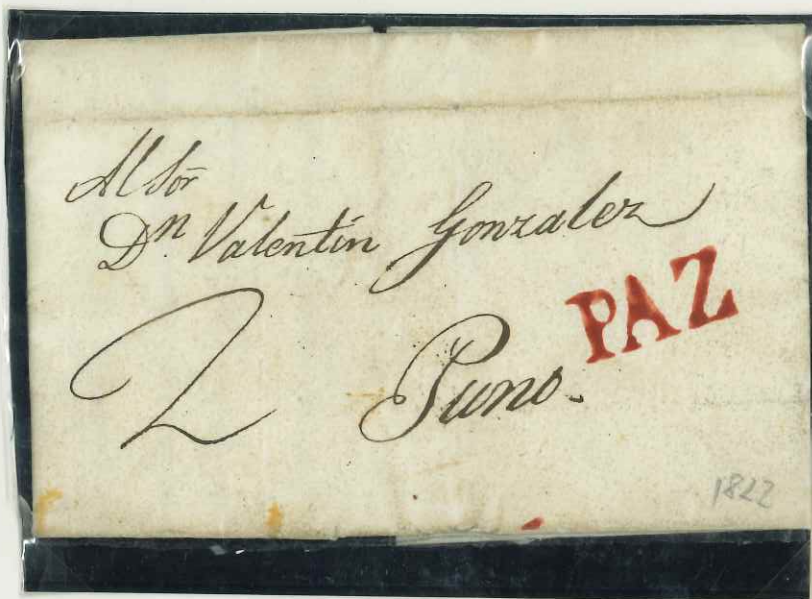 Al Sor
Dn. Valentin Gonzalez
PAZ
2 Puno.
1822